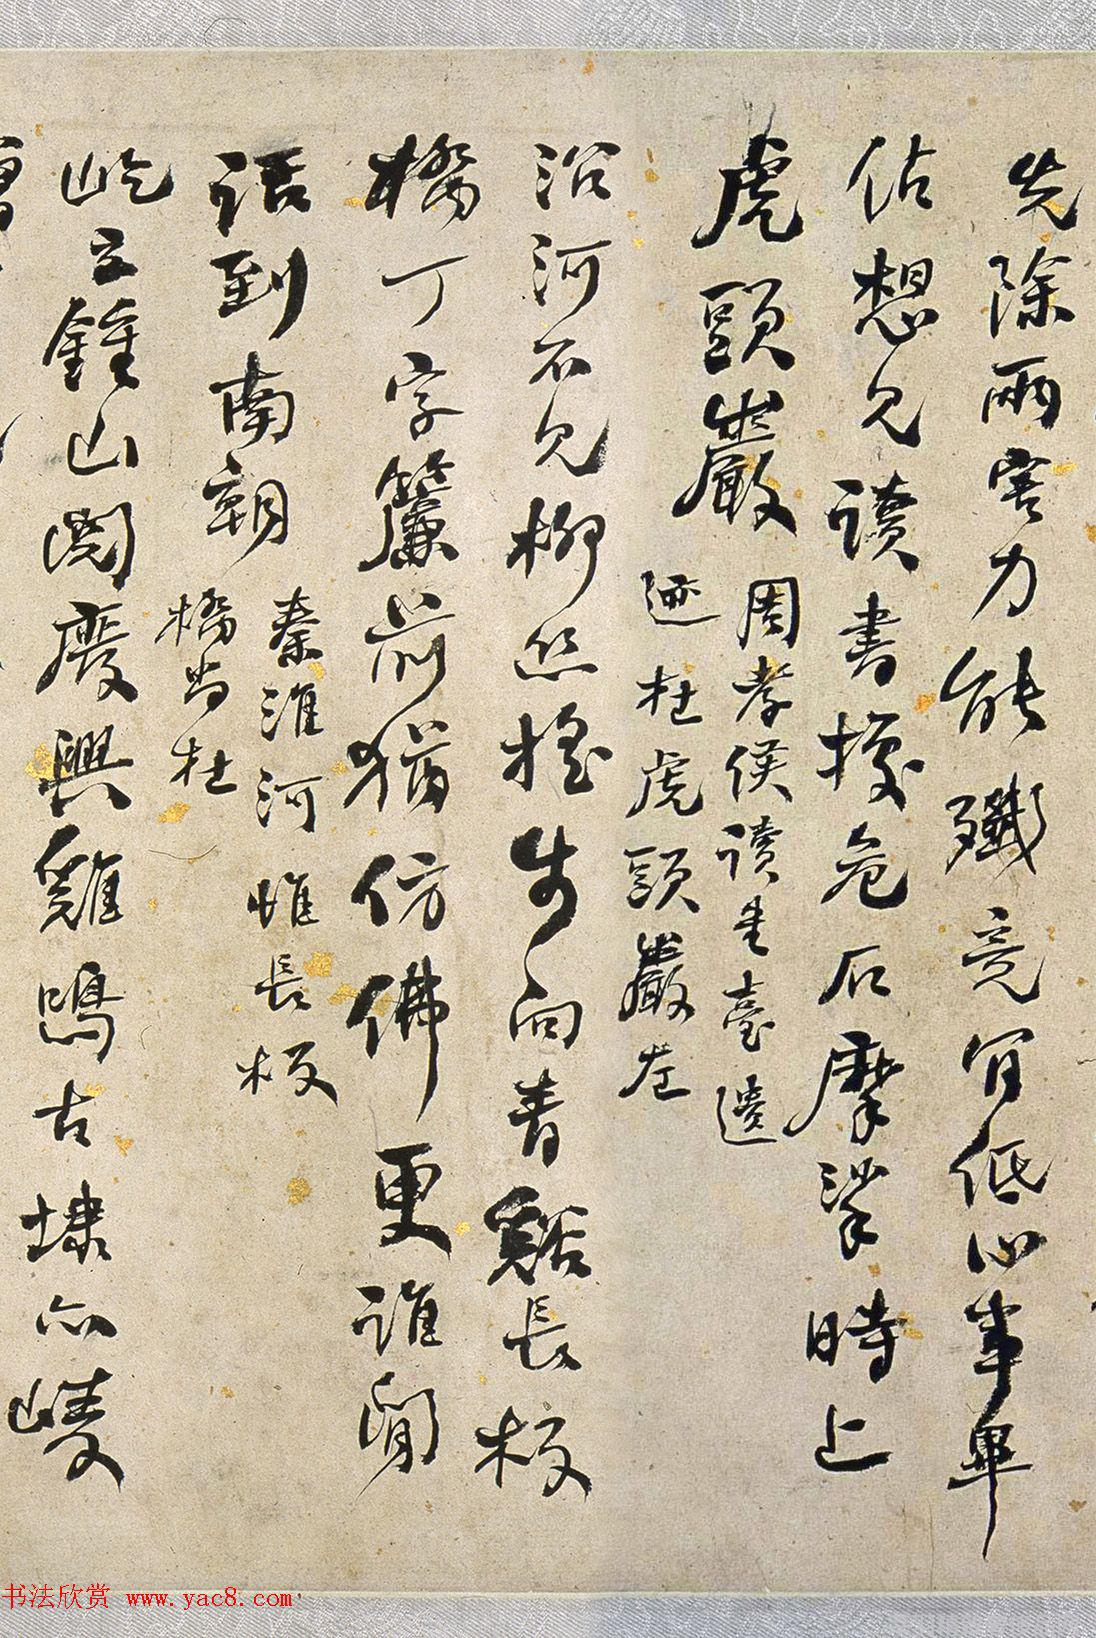 先除兩害力能殲竟肎低心事畢
佔想見讀書據危石摩挲時上
虎頭巖
周孝侯讀書臺遺
迹在虎頭巖左
沿河不見柳絲搖步向青谿長板
橋丁字簾前猶仿佛更誰閒
話到南朝
秦淮河惟長板
橋尚在
屹立鍾山閱廢興雞鳴古埭亦崚
书法欣赏 www.yac8.com